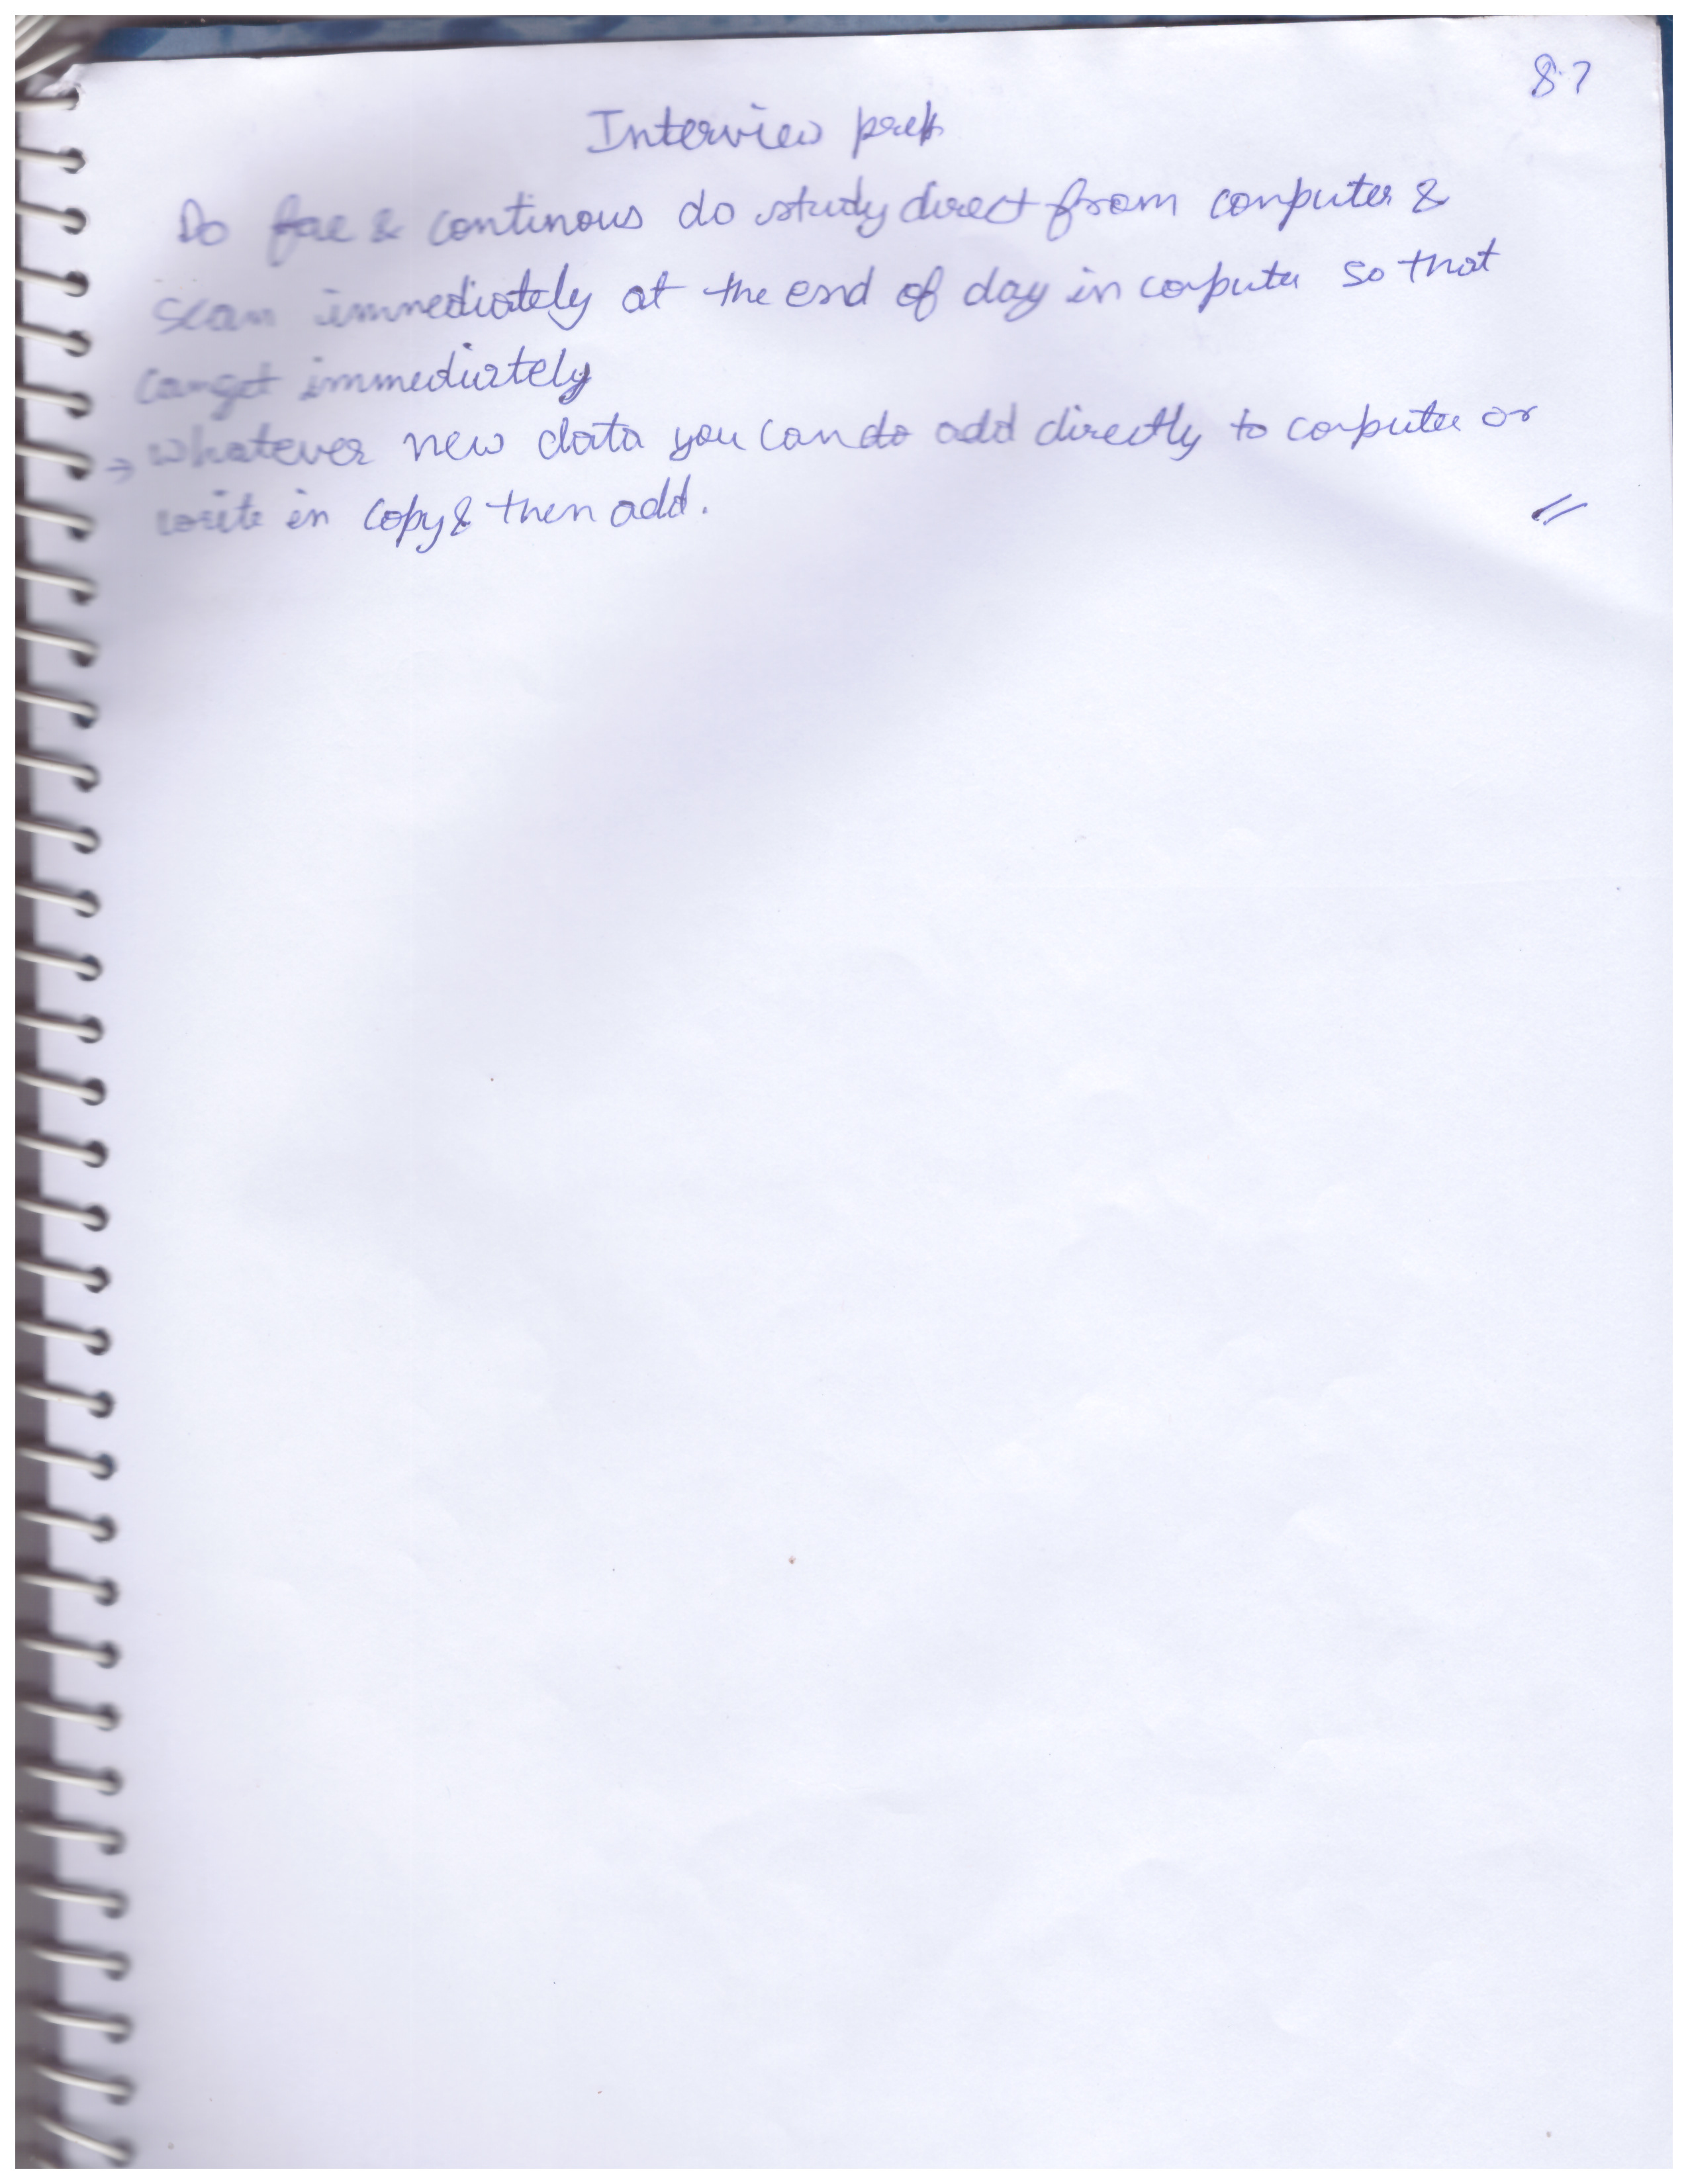 87
Interview prep
Do & continous do study direct from computer &
scan immediately at the end of day in computer so that
canget immediately
→ whatever new data you can do add directly to computer or
write in copy & then add.